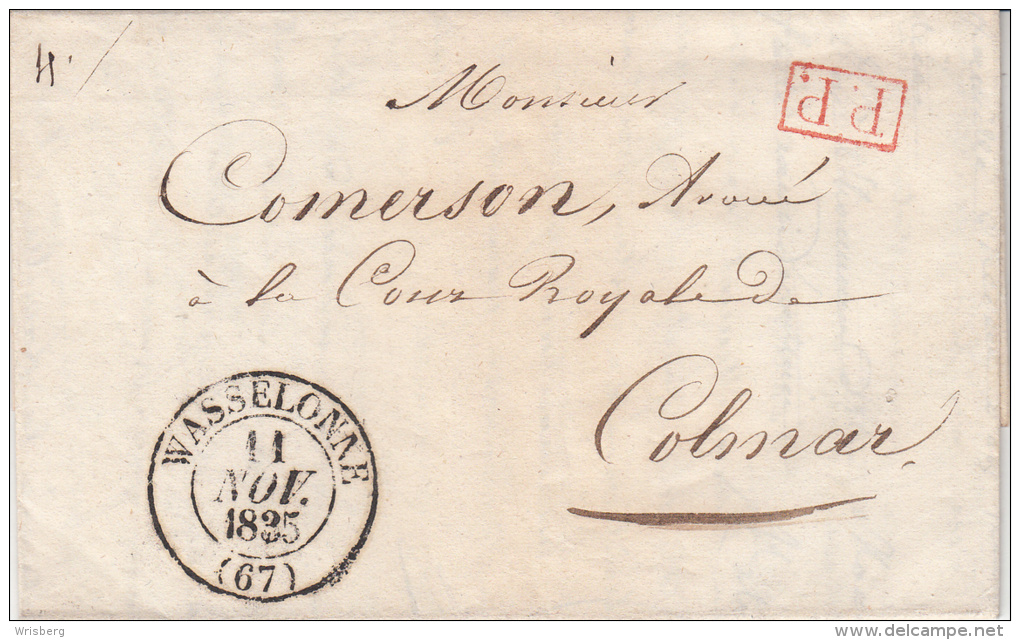 P.P.
Monsieur
Comerson, Avoué
à la Cour Royale de
Colmar
WASSELONNE
11
NOV.
1835
(67)
Wrisberg
delcampe.net